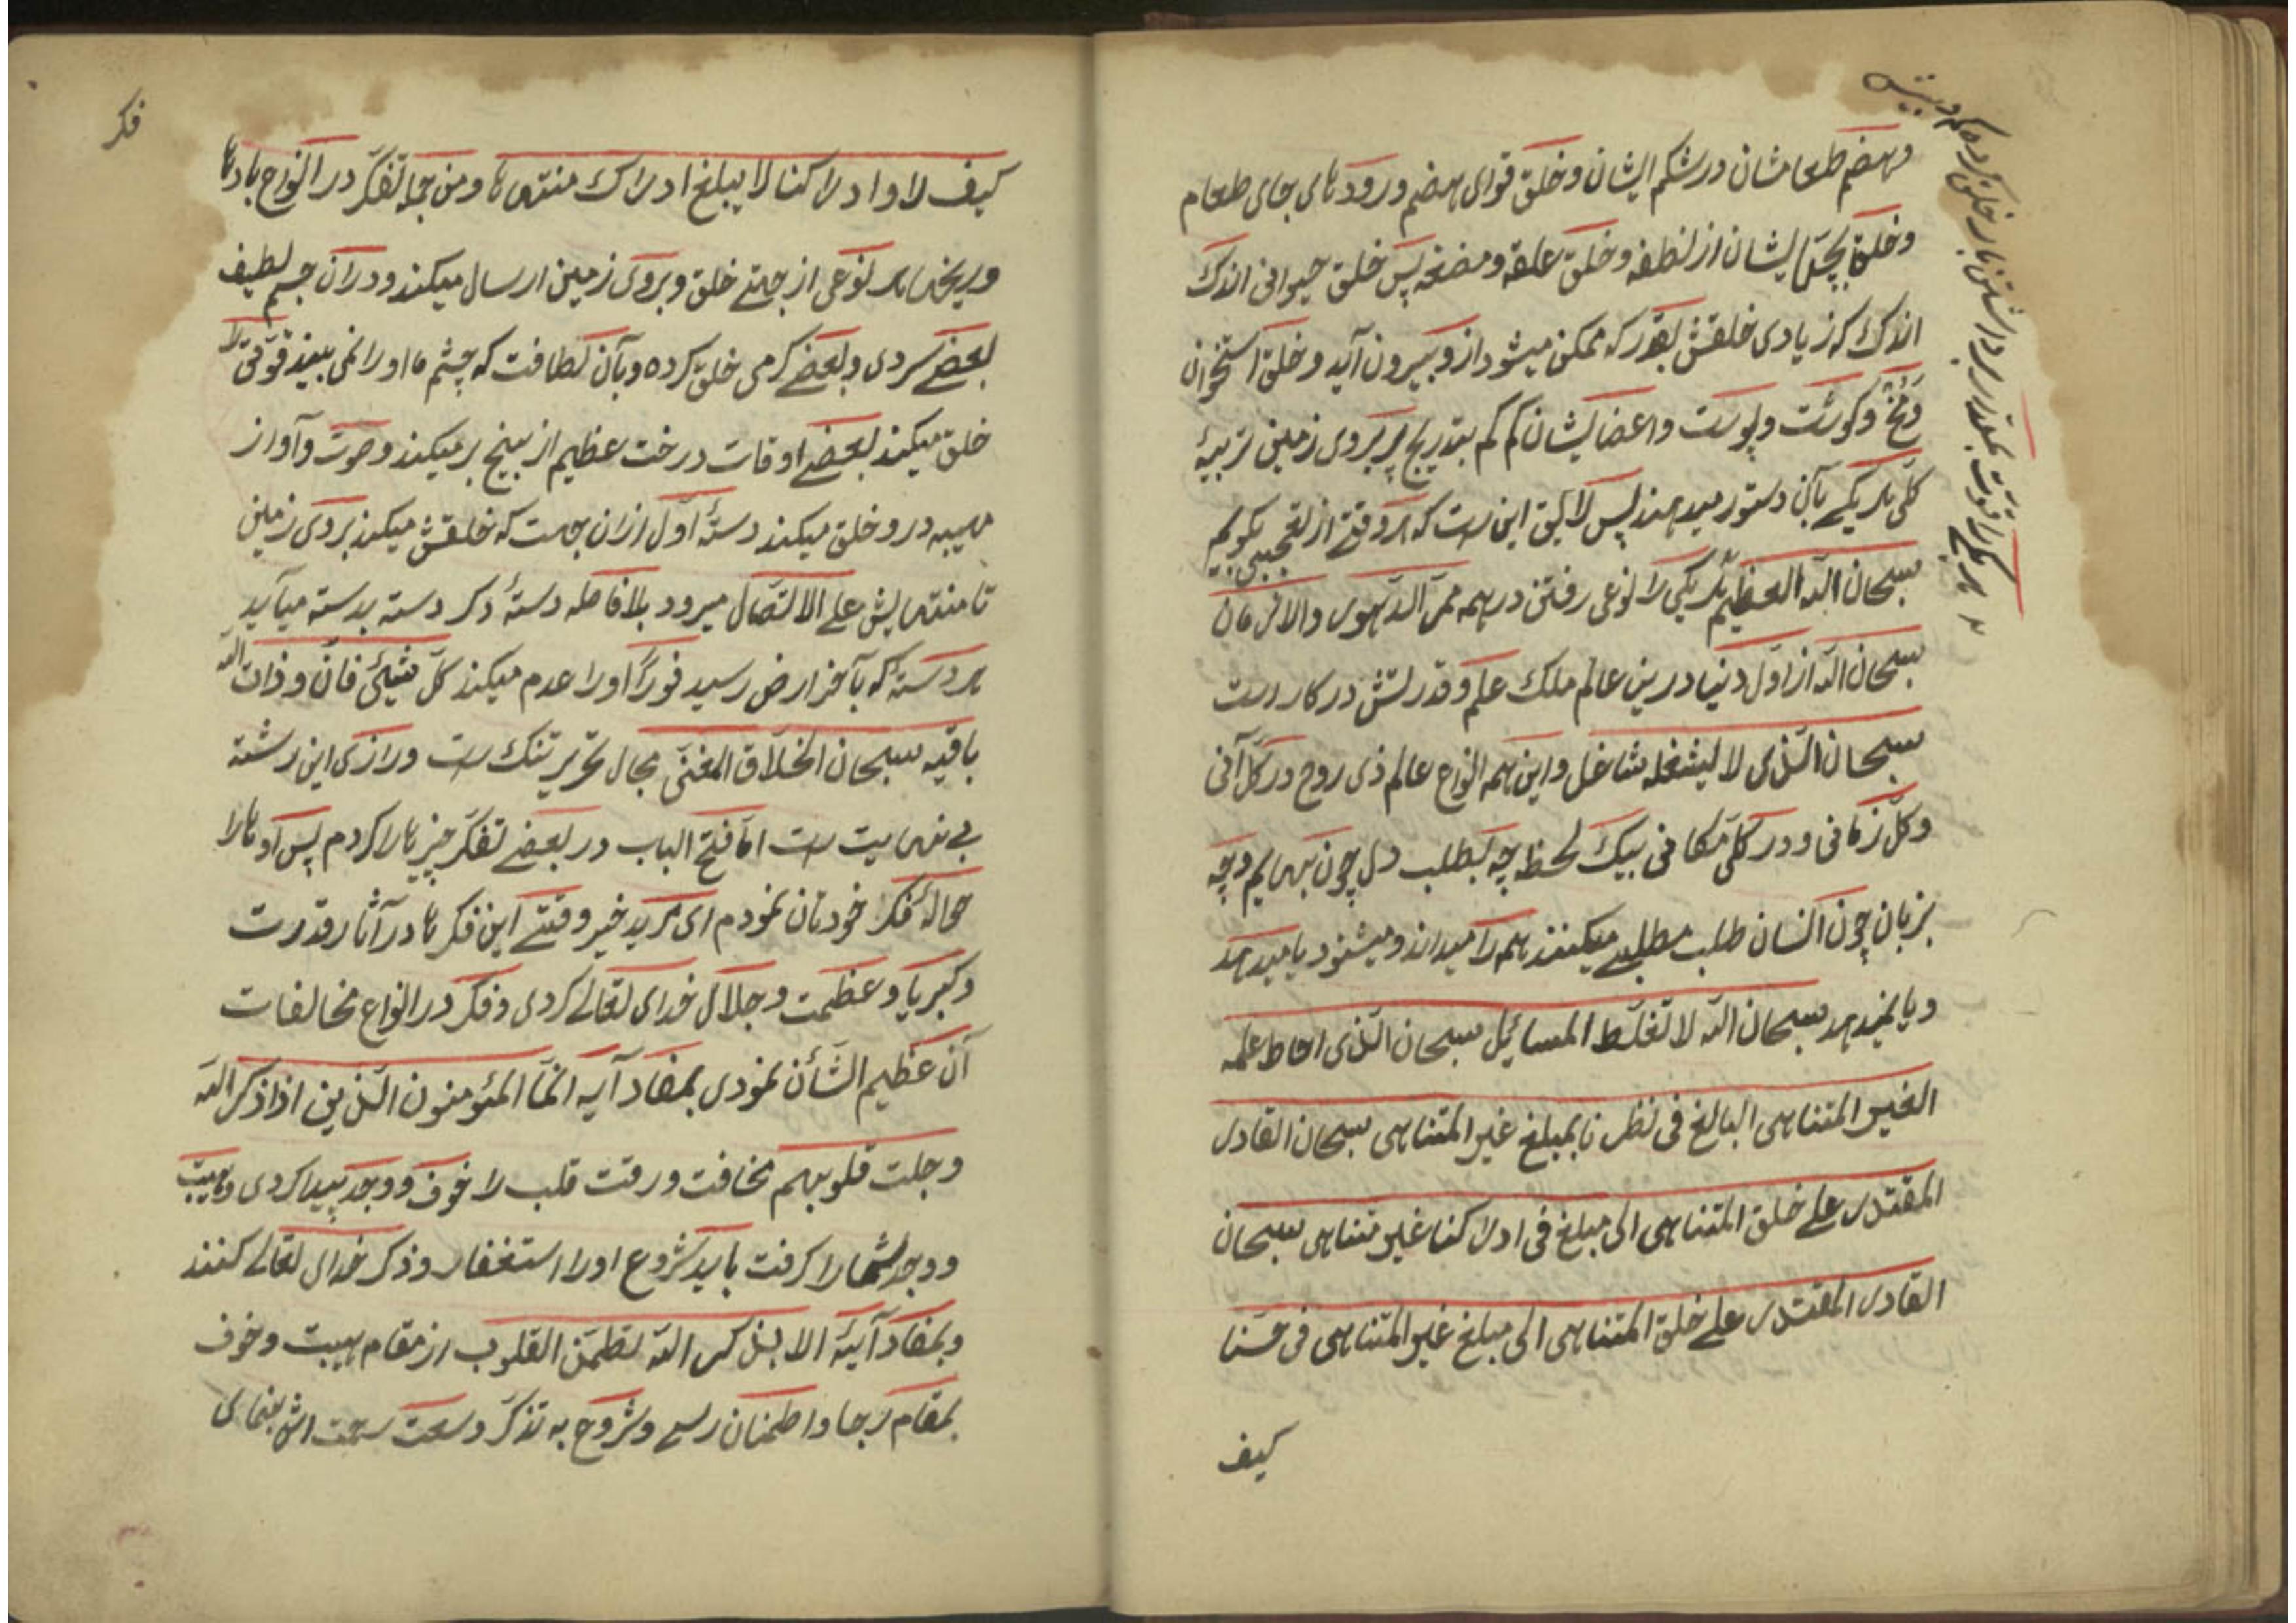 وهضم طعامشان در شکم ایشان وخلق قوای هضم ورودهای جای طعام
وخلق بچهای ایشان از نطفه وخلق علقه ومضغه پس خلق حیوانی اندک
اندک که زیادی خلقش بقدر که ممکن میشود ازو بیرون آید وخلق استخوان
ومخ وکوشت وپوست واعضایشان کم کم بتدریج بر بروی زمین تربیهٔ
کلی هر یکے بآن دستور میدهند پس لایق این است که هر وقتے از تعجب بگویم
سبحان الله العظیم هر یکی را نوعی رفتن در همه ممر الدهور والازمان
سبحان الله از اول دنیا درین عالم ملک علم وقدرتش در کار است
سبحان الذی لا یشغله شاغل واین همه انواع عالم ذی روح در کل آنی
وکل زمانی ودر کل مکانی بیک لحظه چه بطلب دل چون بهایم وچه
بزبان چون انسان طلب مطلبے میکنند همه را میداند ومیشنود یا میدهد
ویا نمیدهد سبحان الله لا تغلّط المسایٔل سبحان الذی احاط علمه
الغیر المتناهی البالغ فی نظرنا بمبلغ غیر المتناهی سبحان القادر
المقتدر علے خلق المتناهی الی مبلغ فی ادراکنا غیر متناهی سبحان
القادر المقتدر علے خلق المتناهی الی مبلغ غیر المتناهی فی حسّنا
کیف
کیف لا وادراکنا لا یبلغ ادراک منتهاها ومن جمله تفکر در انواع بادها
وریحها هر نوعی از جهتے خلق وبروی زمین ارسال میکند ودران جسم لطیف
بعضے سردی وبعضے کرمی خلق کرده وبآن لطافت که چشم ما او را نمی بیند قوتی را
خلق میکند بعضے اوقات درخت عظیم از بیخ بر میکند وصوت وآواز
مهیبه درو خلق میکند دستهٔ اول ازان جهت که خلقش میکند بروی زمین
تا منتهایش علے الاتصال میرود بلا فاصله دستهٔ دکر دسته بدسته میآید
هر دسته که بآخر ارض رسید فورًا او را عدم میکند کل شیئ فان وذات الله
باقیه سبحان الخلاق المغنی مجال تحریر تنک است ودرازی این رشته
بے نهایت است اما فتح الباب در بعضے تفکر چیزها را کردم پس اوها را
حوالهٔ فکر خودتان نمودم ای مرید خیر وقتے این فکرها در آثار قدرت
وکبریا وعظمت وجلال خدای تعالے کردی وفکر در انواع مخالفات
آن عظیم الشأن نمودی بمفاد آیه انما المئومنون الذین اذا ذکر الله
وجلت قلوبهم مخافت ورقت قلب را خوف ووجد پیدا کردی وهیبت
ووجد شما را کرفت باید شروع او را استغفار وذکر خدای تعالے کنند
وبمفاد آیهٔ الا بذکر الله تطمئن القلوب از مقام هیبت وخوف
بمقام رجا واطمنان رسے وشروع به تذکر وسعت رحمت اش بنمای
فکر